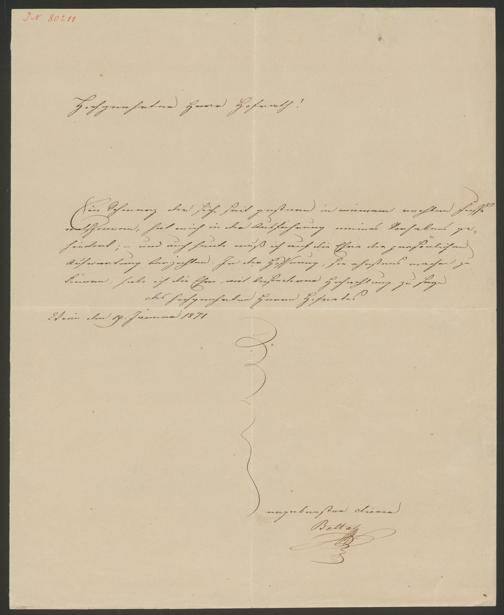 I.N. 80211
Hochgeehrter Herr Hofrath!
Ein Schmerz der sich seit gestern in meinem rechten Fuße
, hat mich in der Ausführung meines Vorhabens ge-
hindert; – und auch heute muß ich auf die Ehre der persönlichen
Aufwartung verzichten. In der Hoffnung, sie ehestens machen zu
können, habe ich die Ehre mit besonderer Hochachtung zu sein
des hochgeehrten Herrn Hofrathes
Wien den 19. Jänner 1871
ergebenster Diener